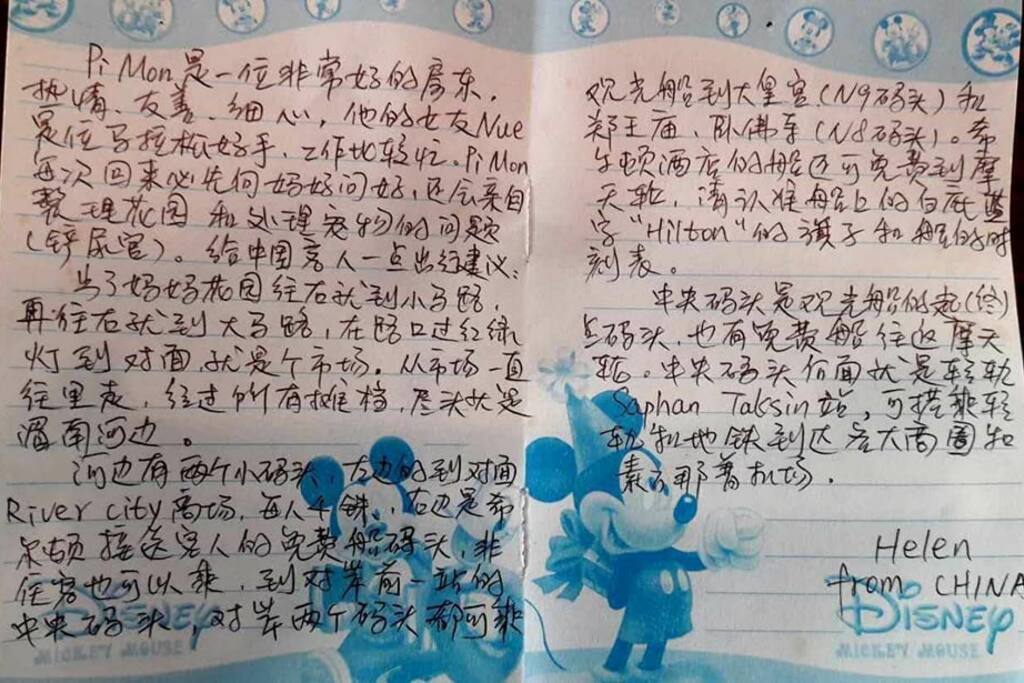 Pi Mon是一位非常好的房东,
热情、友善、细心,他的女友Nue
是位马拉松好手,工作比较忙。Pi Mon
每次回来必先向妈妈问好,还会亲自
整理花园和处理宠物的问题
(铲屎官)。给中国客人一点出行建议:
出了妈妈花园往右就到小马路,
再往右就到大马路,在路口过红绿
灯到对面就是个市场。从市场一直
往里走,经过所有摊档,尽头就是
湄南河边。
河边有两个小码头,左边的到对面
River city商场,每人4铢,右边是希
尔顿接送客人的免费船码头,非
住客也可以乘,到对岸前一站的
中央码头,对岸两个码头都可乘
观光船到大皇宫(N9码头)和
郑王庙、卧佛寺(N8码头)。希
尔顿酒店的船还可免费到摩
天轮,请认准船上的白底蓝
字“Hilton”的旗子和船的时
刻表。
中央码头是观光船的起(终)
点码头,也有免费船往返摩天
轮。中央码头后面就是轻轨
Saphan Taksin站,可搭乘轻
轨和地铁到达各大商圈和
素万那普机场.
Helen
from CHINA
DISNEY
MICKEY MOUSE
DISNEY
MICKEY MOUSE